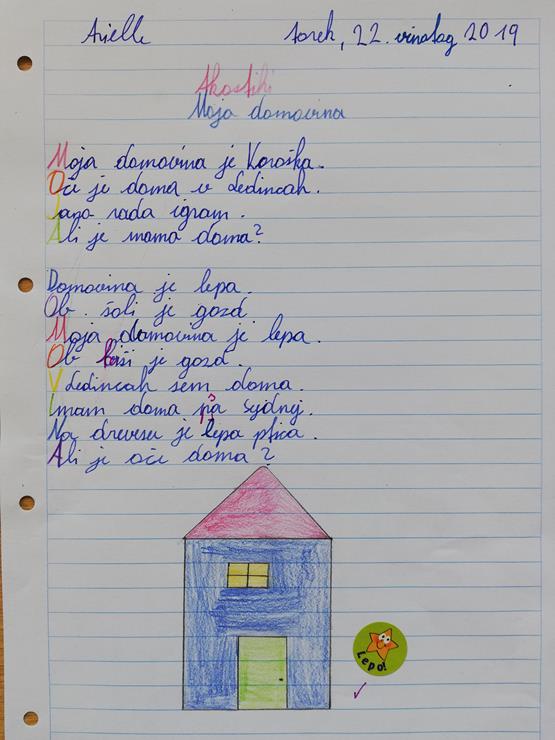 Arielle torek, 22. vinotog 2019
Akostihi
Moja domovina
Moja domovina je Koroška.
Oči je doma v Ledincah.
Jago rada igram.
Ali je mama doma?
Domovina je lepa.
Ob šoli je gozd
Moja domovina je lepa.
Ob hiši je gozd.
V Ledincah sem doma.
Imam doma psa Sydnej.
Na drevesu je lepa ptica.
Ali je oči doma?
Lepo!